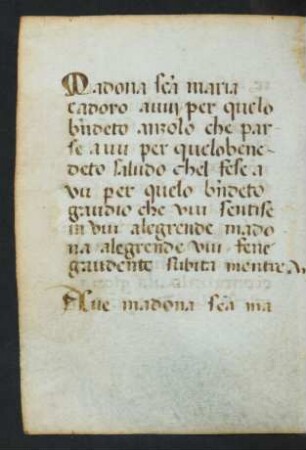 Madona sc̄a maria
cadoro auui per quelo
bn̄deto anzolo che par
se a vui per quelo bene
deto saludo chel fese a
vu per quelo bn̄deto
gaudio che vui sentise
in vui alegrende mado
na alegrende vui fene
gaudente subita mentre
Aue madona sc̄a ma